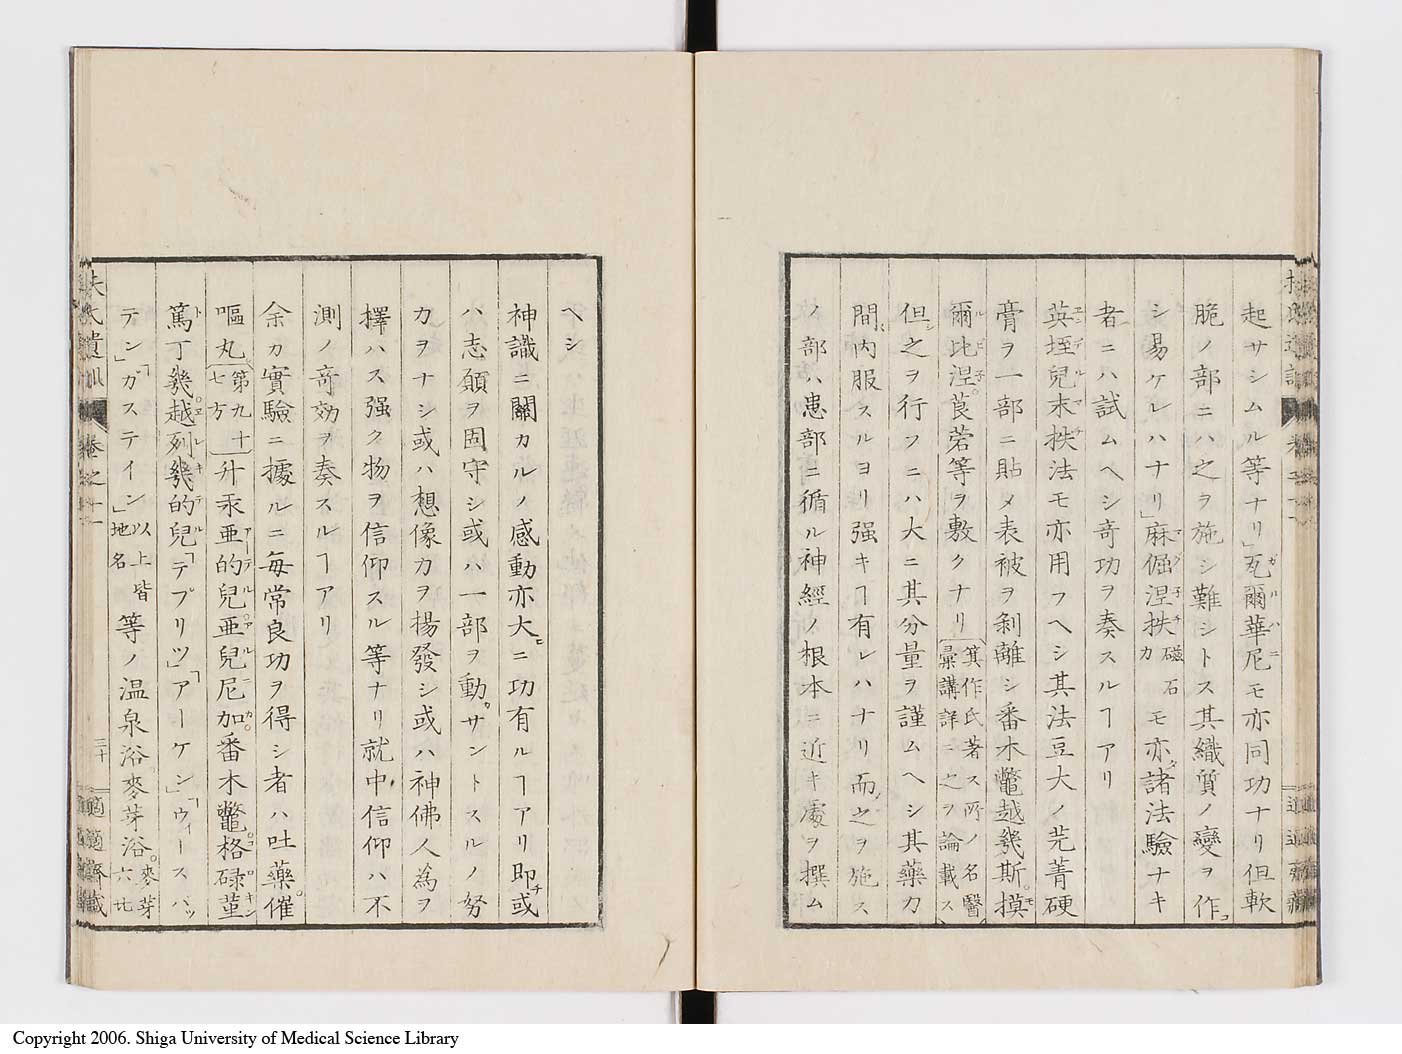 起サシムル等ナリ」瓦爾華尼モ亦同功ナリ但軟
脆ノ部ニハ之ヲ施シ難シトス其織質ノ變ヲ作
シ易ケレハナリ」麻倔涅扶磁石力モ亦諸法驗ナキ
者ニハ試ムヘシ奇功ヲ奏スルヿアリ
英垤兒末扶法モ亦用フヘシ其法豆大ノ芫菁硬
膏ヲ一部ニ貼メ表被ヲ剥離シ番木鼈越幾斯。摸
爾比涅。莨菪等ヲ敷クナリ箕作氏著ス所ノ名醫彙講詳ニ之ヲ論載ス
但之ヲ行フニハ大ニ其分量ヲ謹ムヘシ其藥力
間内服スルヨリ强キヿ有レハナリ而之ヲ施ス
ノ部ハ患部ニ循ル神經ノ根本ニ近キ處ヲ撰ム
ヘシ
神識ニ關カルノ感動亦大ニ功有ルヿアリ即或
ハ志願ヲ固守シ或ハ一部ヲ動サントスルノ努
力ヲナシ或ハ想像力ヲ揚發シ或ハ神佛人為ヲ
擇ハス强ク物ヲ信仰スル等ナリ就中信仰ハ不
測ノ奇効ヲ奏スルヿアリ
余カ實驗ニ據ルニ每常良功ヲ得シ者ハ吐藥。催
嘔丸第九十七方升汞亜的兒。亜兒尼加。番木鼈。格碌菫
篤丁幾。越列幾的兒「テプリツ」「アーケン」「ウィースバッ
テン」「ガステイン」以上皆地名等ノ温泉浴麥芽浴。麥芽六七
扶氏遺訓
卷之十一
三十
適適齋藏